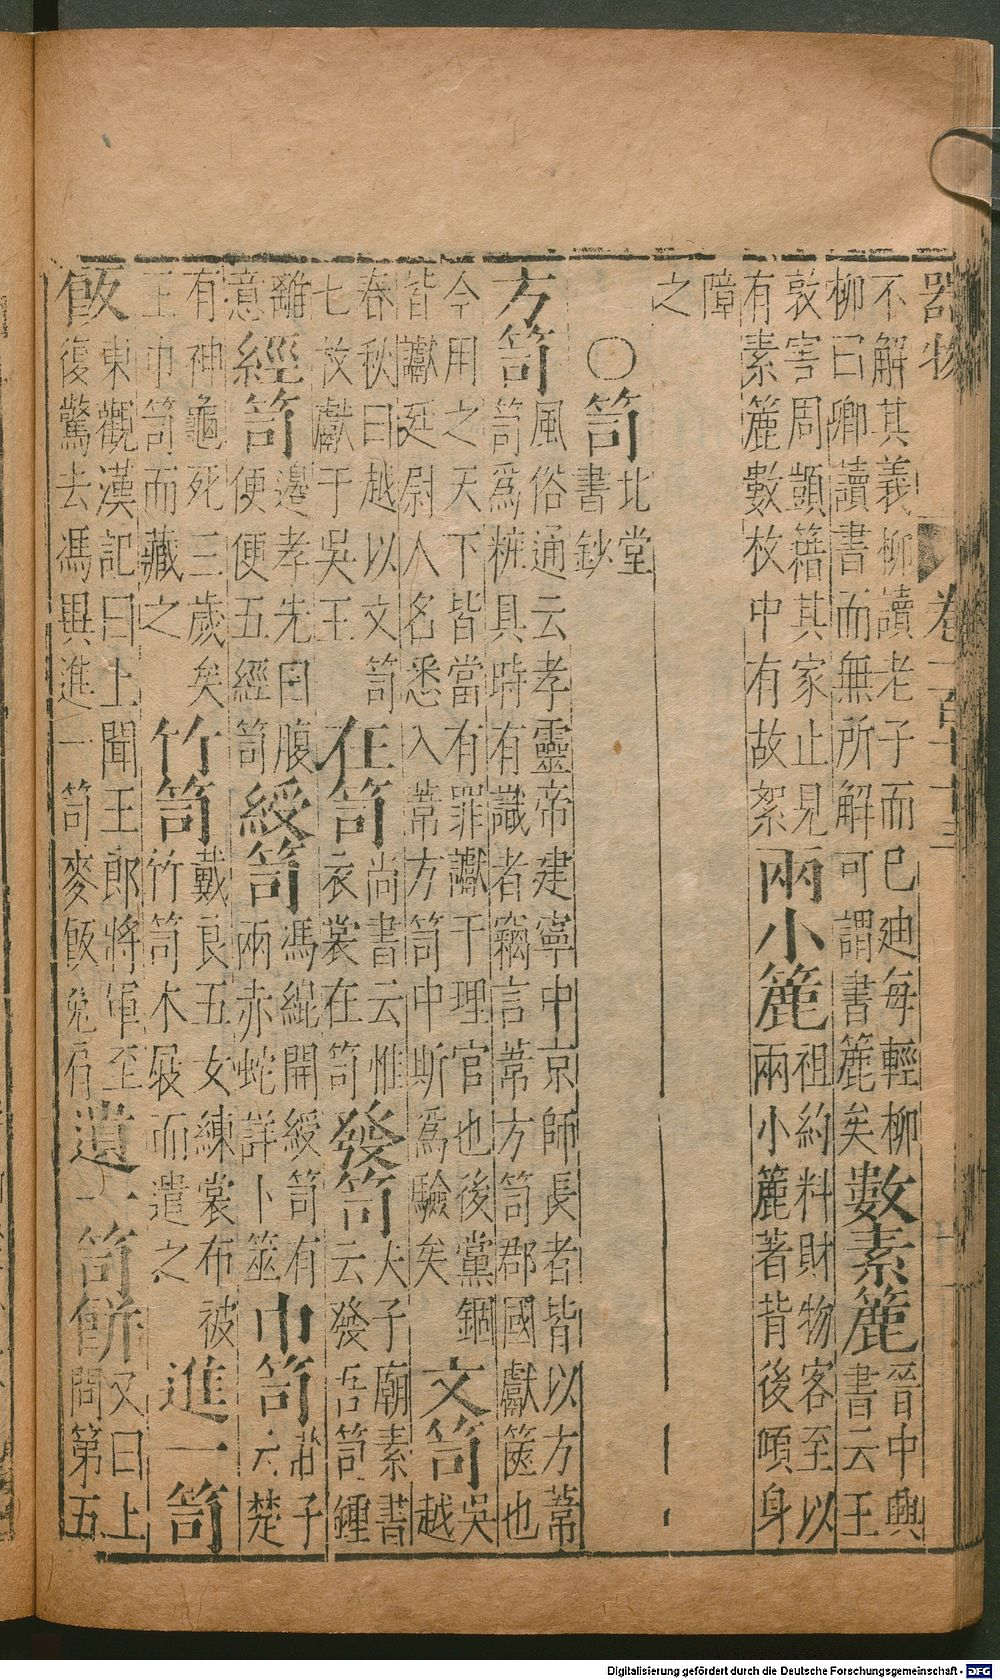 器物 卷一百十三
不解其義柳讀老子而已廸每輕柳
柳曰卿讀書而無所解可謂書簏矣數素簏晉中興書云王
敦害周顗籍其家止見
有素簏數枚中有故絮兩小簏祖約料財物客至以兩小簏著背後傾身
障
之
○笥北堂書鈔
方笥風俗通云孝靈帝建寧中京師長者皆以方葦
笥爲粧具時有識者竊言葦方笥郡國讞篋也
今用之天下皆當有罪讞于理官也後黨錮
皆讞廷尉人名悉入葦方笥中斯爲驗矣文笥吳越
春秋曰越以文笥
七枚獻于吳王在笥尚書云惟衣裳在笥發笥夫子廟素書云發吾笥鍾
離
意經笥邊孝先曰腹便便五經笥綬笥馮緄開綬笥有兩赤蛇詳卜筮巾笥莊子云楚
有神龜死三歲矣
王巾笥而藏之竹笥戴良五女練裳布被竹笥木屐而遣之進一笥
飯東觀漢記曰上聞王郎將軍至
復驚去馮異進一笥麥飯兔肩遺一笥餅又曰上問第五
Digitalisierung gefördert durch die Deutsche Forschungsgemeinschaft - DFG